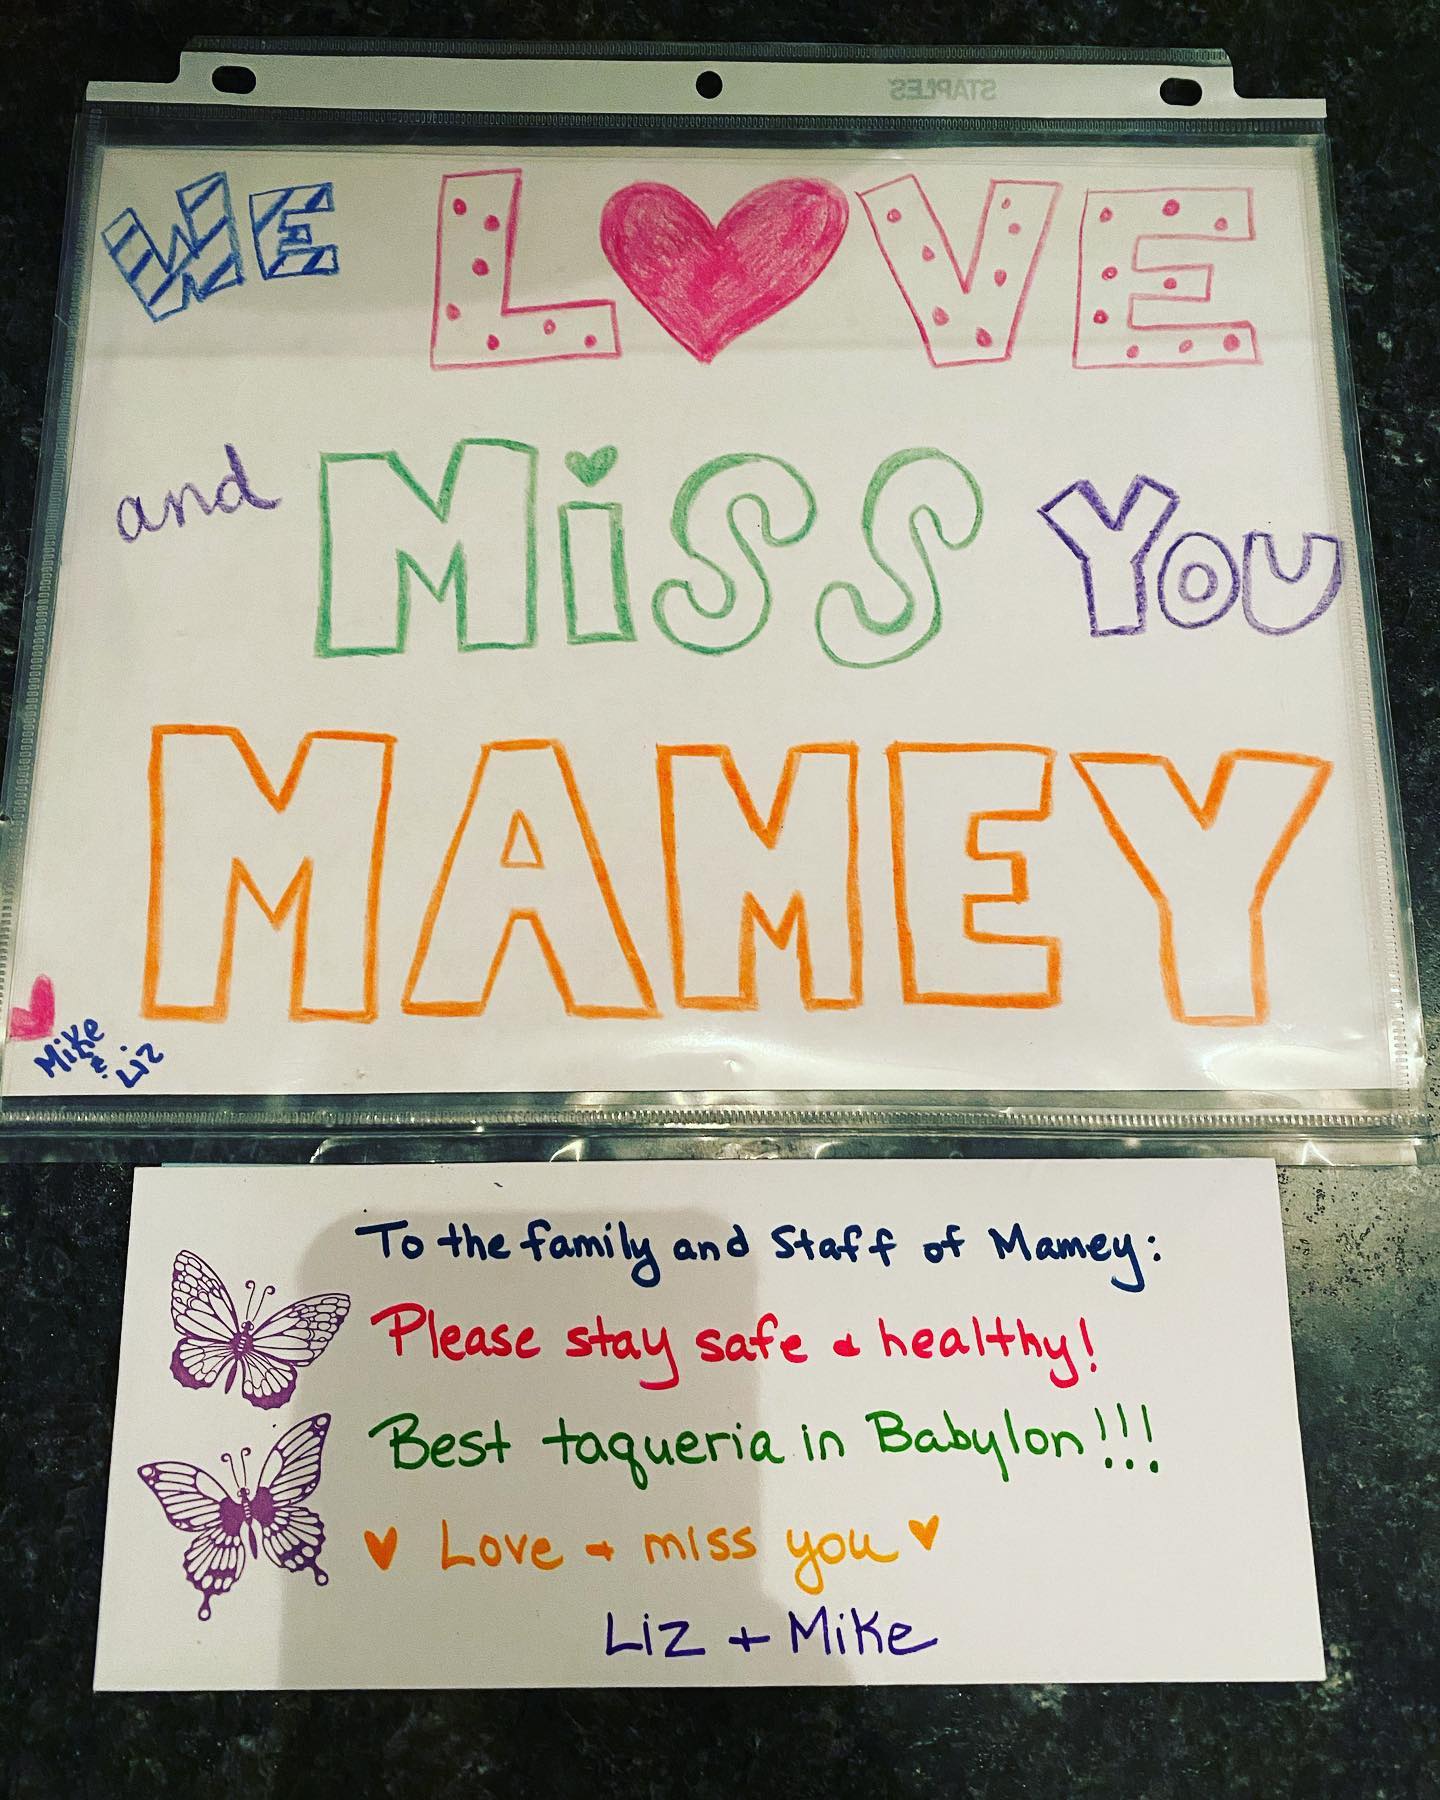 STAPLES
WE LOVE
and MiSS YOU
MAMEY
Mike
&
Liz
To the family and Staff of Mamey:
Please stay safe & healthy!
Best taqueria in Babylon!!!
♥ Love + miss you ♥
Liz + Mike